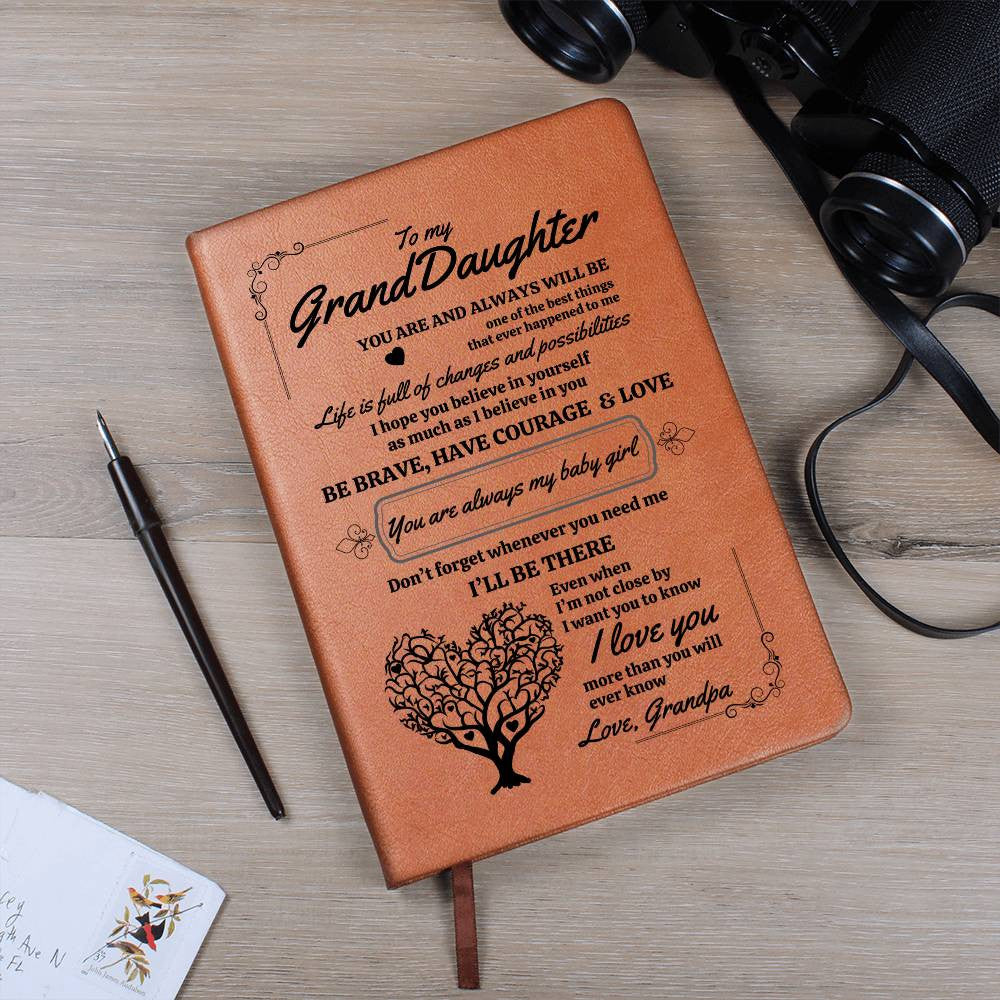 To my
GrandDaughter
YOU ARE AND ALWAYS WILL BE
one of the best things
that ever happened to me
Life is full of changes and possibilities
I hope you believe in yourself
as much as I believe in you
BE BRAVE, HAVE COURAGE & LOVE
You are always my baby girl
Don't forget whenever you need me
I'LL BE THERE
Even when
I'm not close by
I want you to know
I love you
more than you will
ever know
Love, Grandpa
Ave N
FL
37
John James Audubon